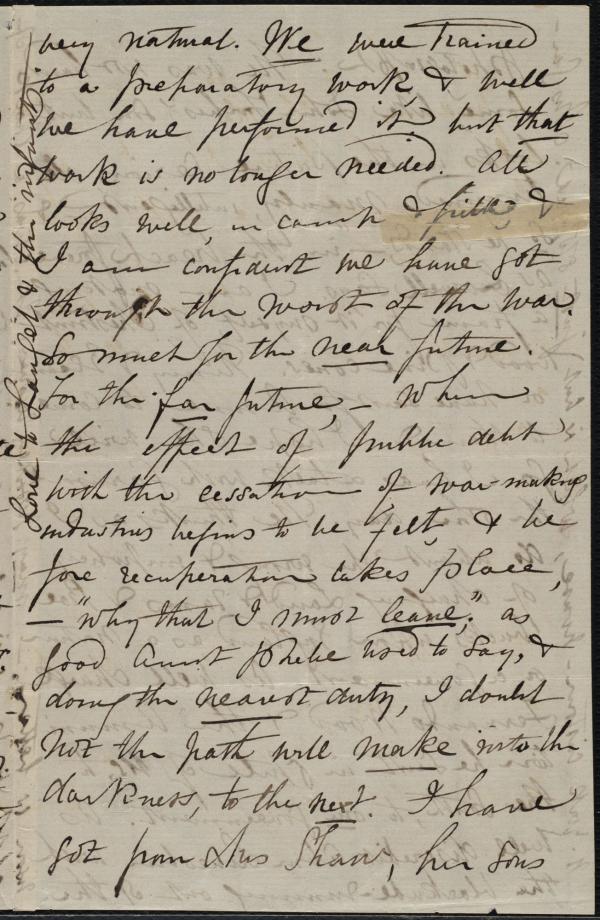 very natural. We were trained
to a preparatory work, & well
we have performed it but that
work is no longer needed. All
looks well, in camp & &
I am confident we have got
through the worst of the war.
So much for the near future.
For the far future, – when
the effect of public debt
with the cessation of war-making
industries begins to be felt, & be
fore recuperation takes place,
— "why that I must leave," as
good Aunt Phebe used to say, &
doing the nearest duty, I doubt
not the path will make into the
darkness, to the next. I have
got from Mrs Shaw, her sons
Love to & the infant